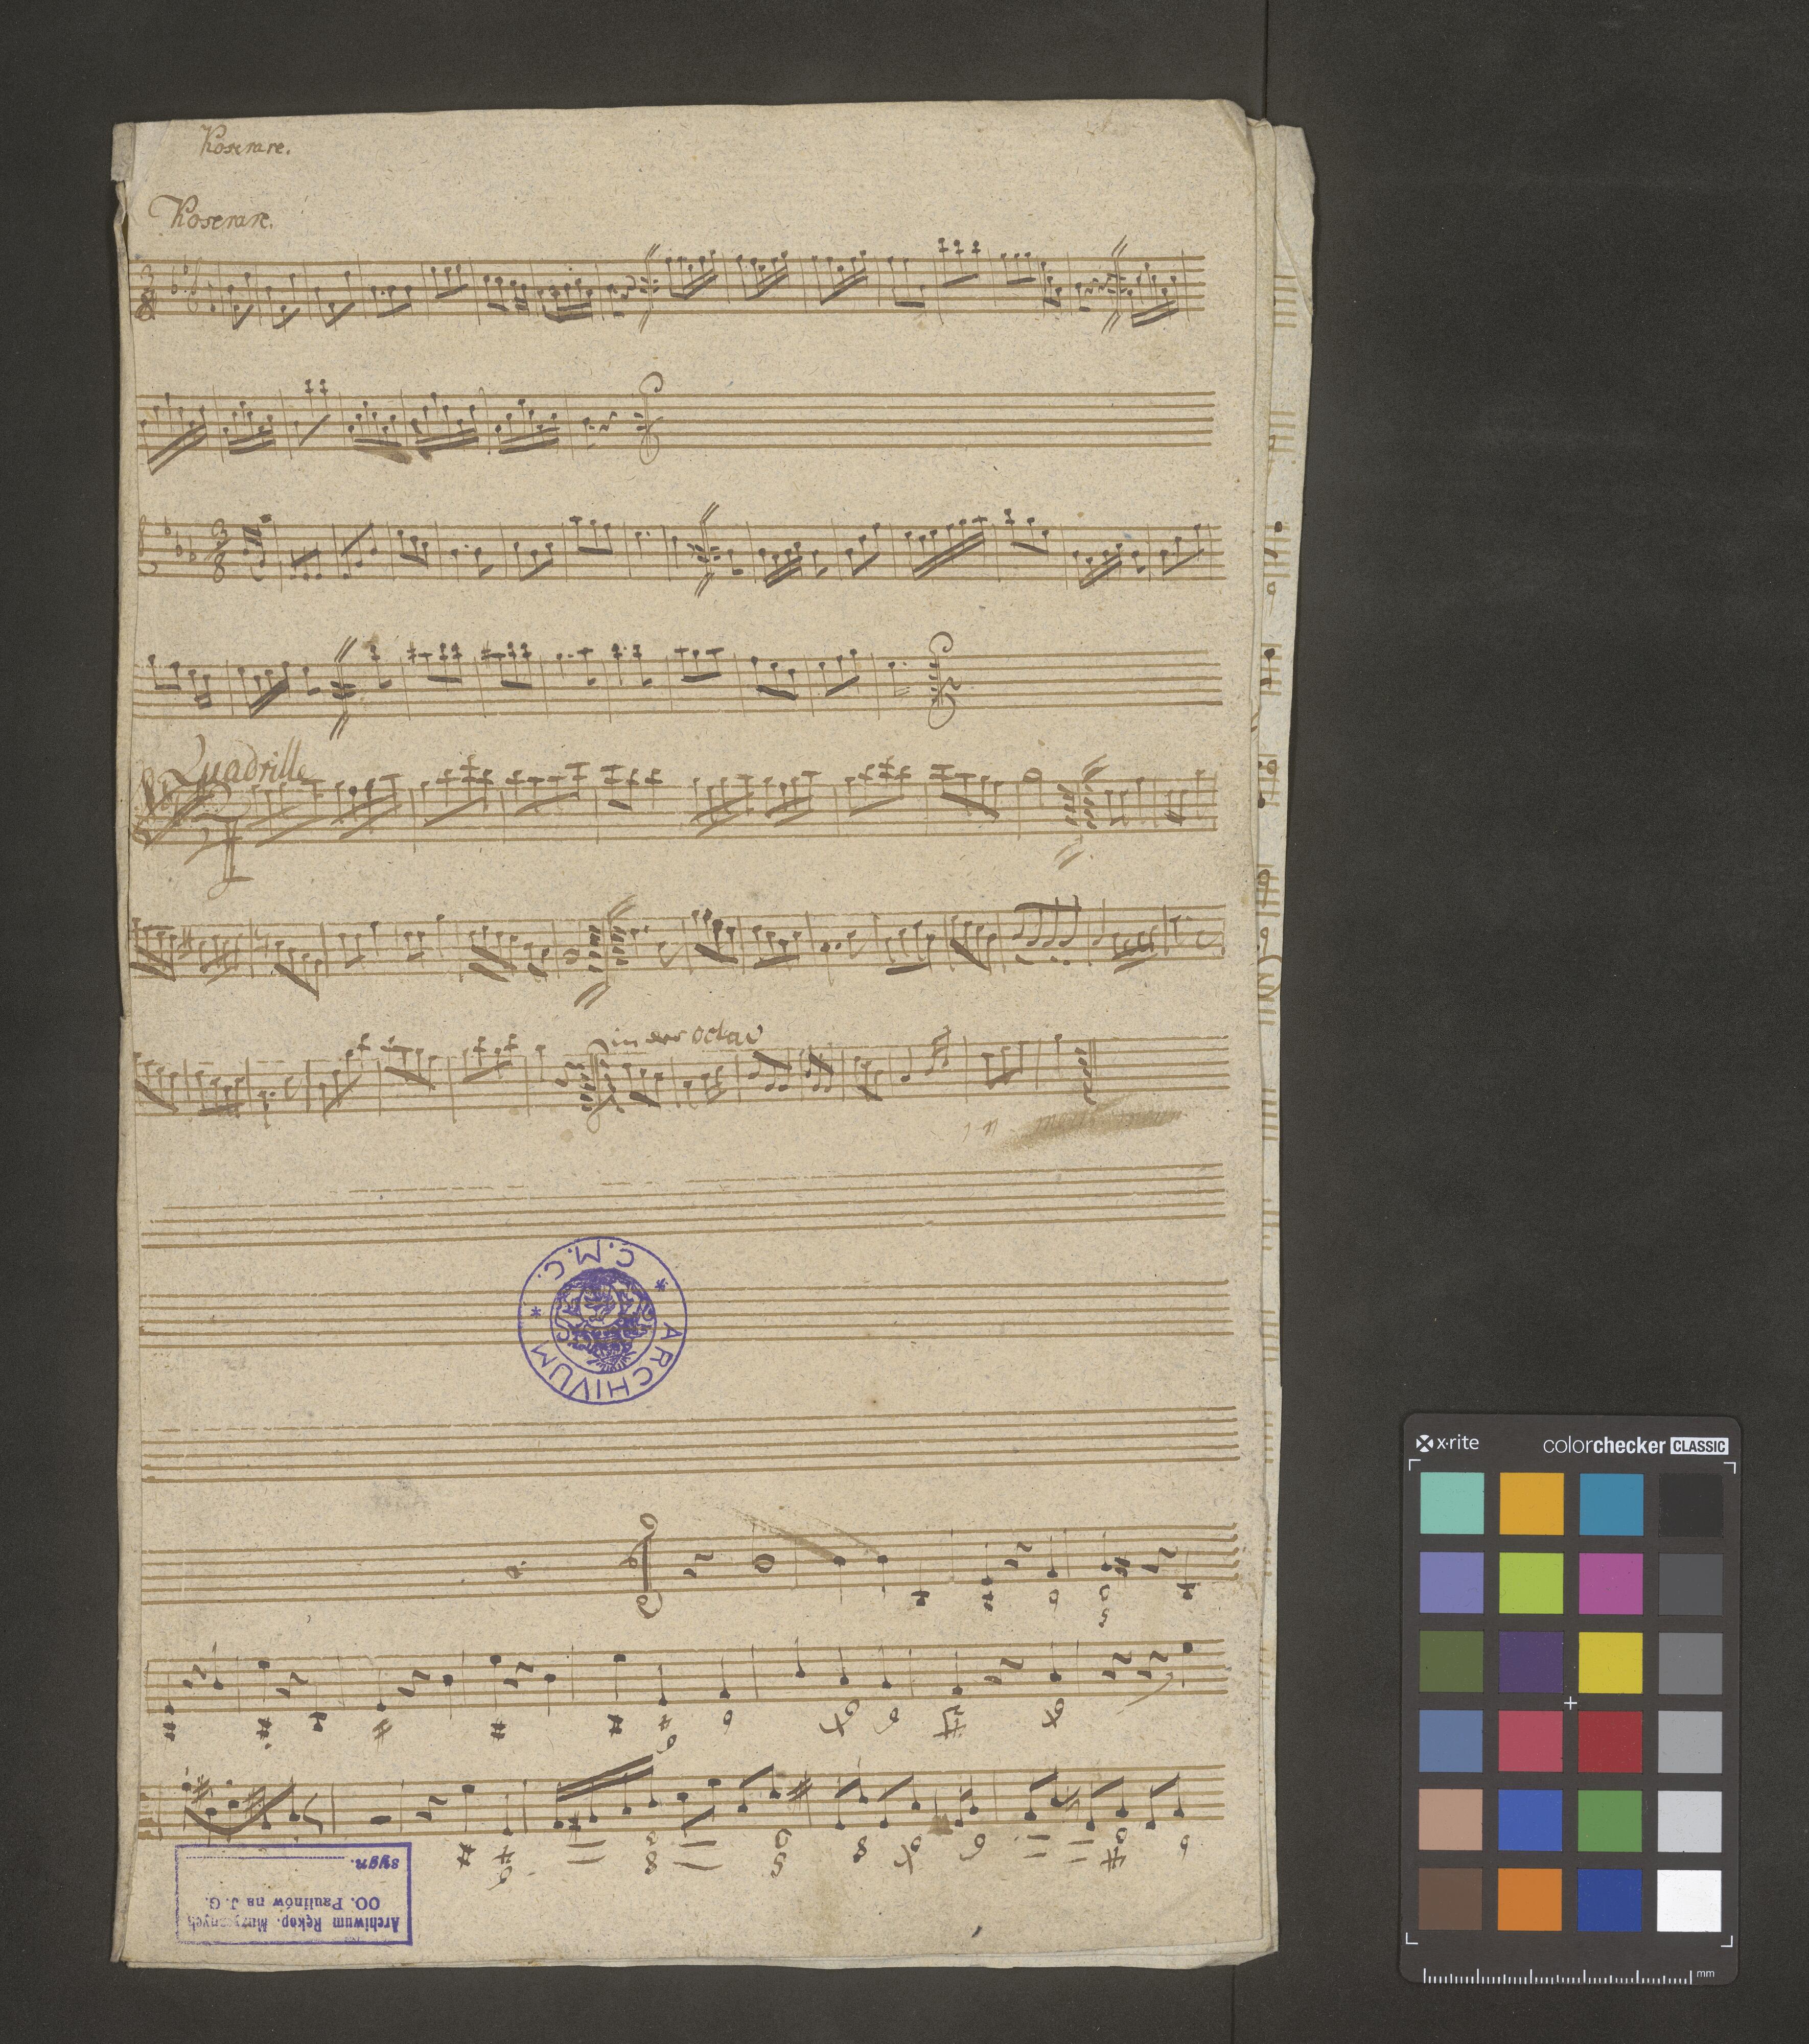 Roserare.
Roserare.
3
8
3
8
Quadrille
in der octav
C.M.C.
* ARCHIVUM *
9
6
5
9
9
9
6
6
9
8
6
5
8
6
9
6
9
Archiwum Rękop. Muzycznych
OO. Paulinów na J. G.
sygn.
x-rite
colorchecker CLASSIC
mm